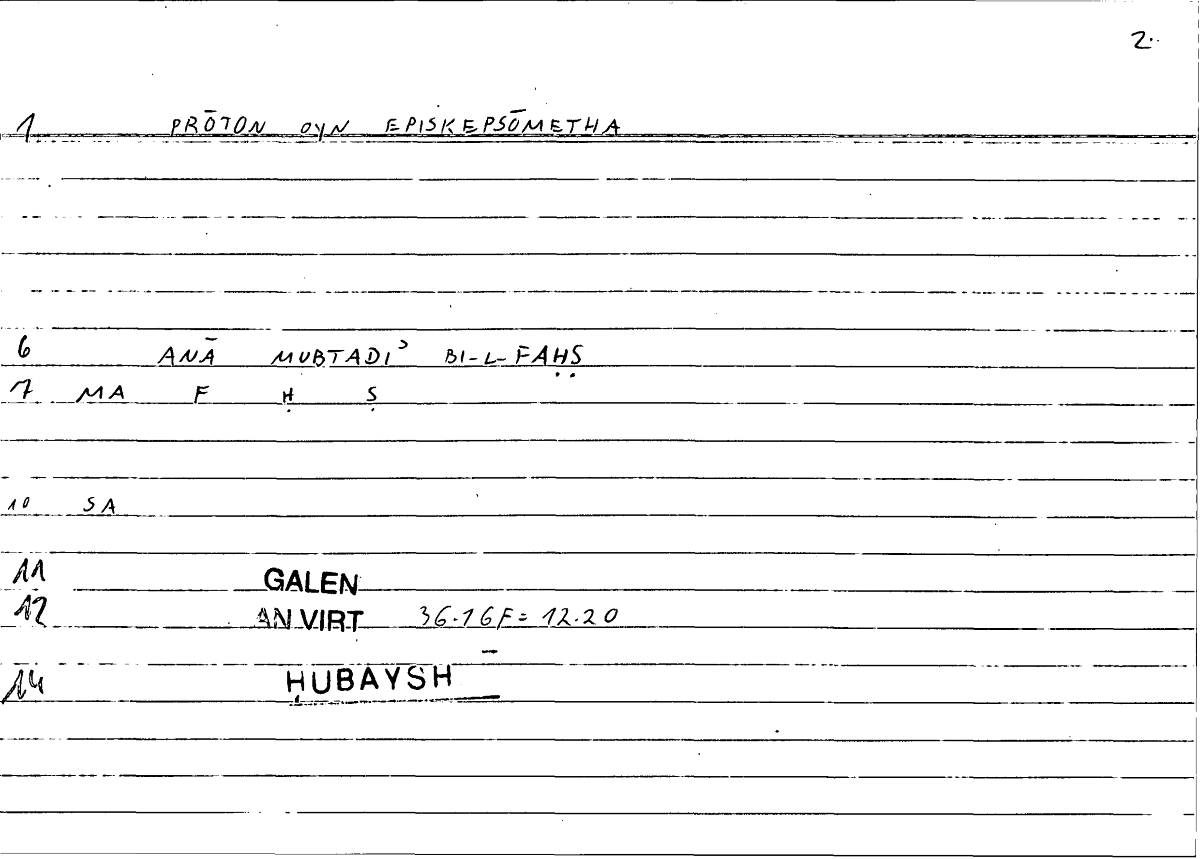 2.
1 PRŌTON OYN EPISKEPSŌMETHA
6 ANĀ MUBTADIʾ BI-L-FAḤṢ
7 MA F Ḥ Ṣ
10 SA
11 GALEN
12 AN VIRT 36.16F = 12.20
14 ḤUBAYSH